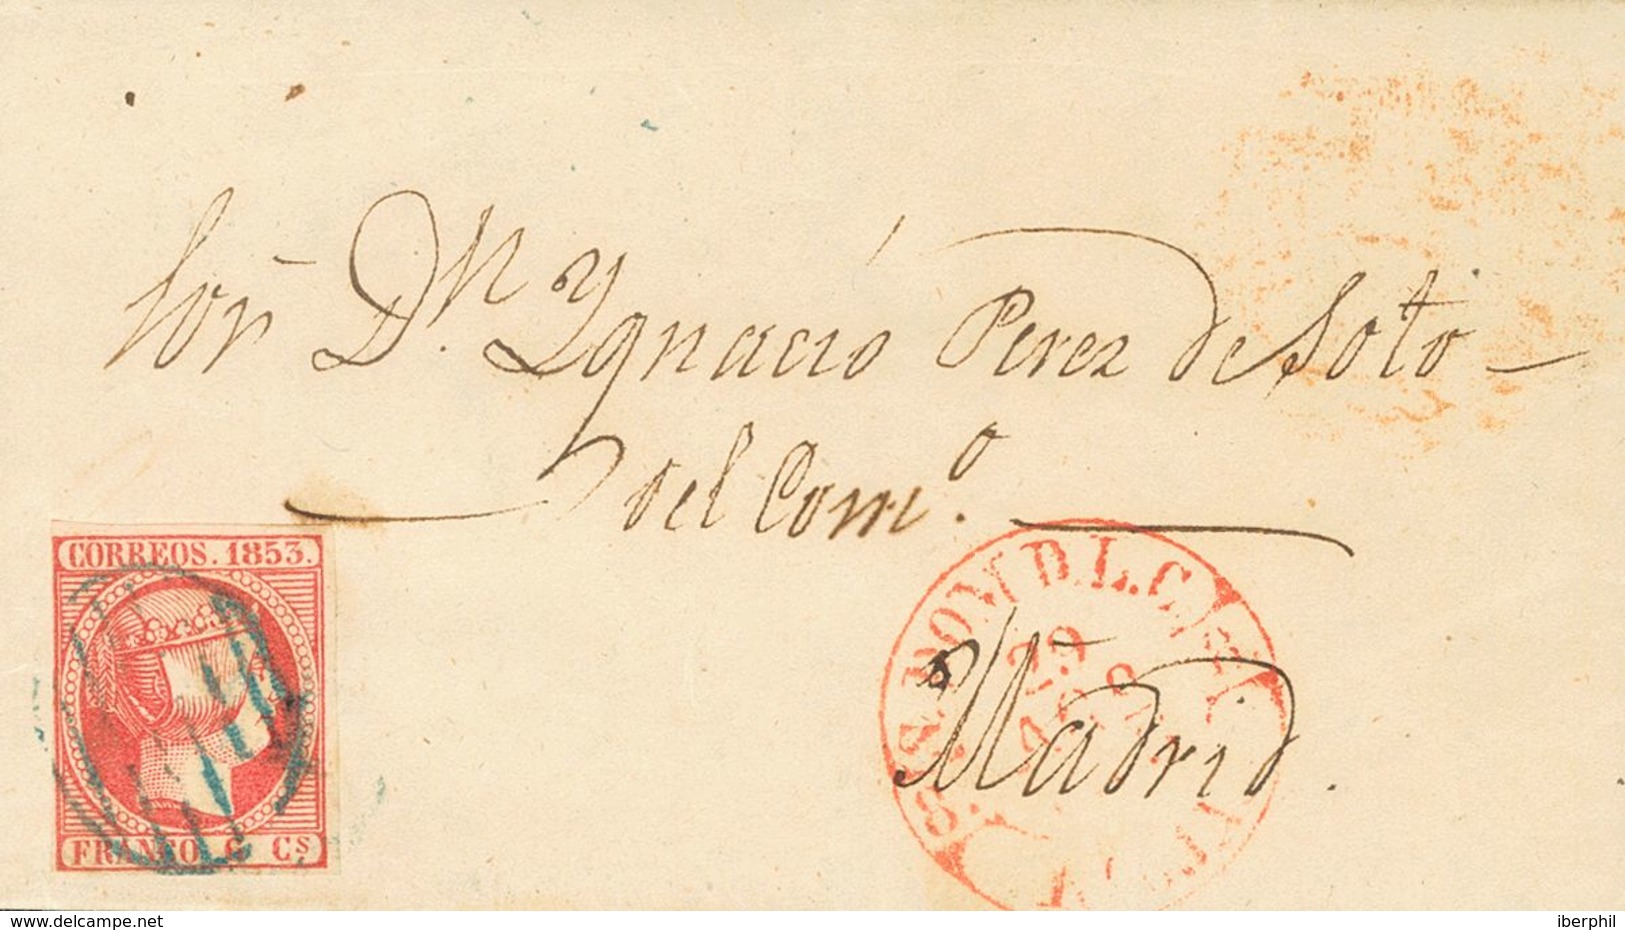 Sor̃ Dn. Ygnacio Perez de Soto
del Como.
Madrid.
CORREOS. 1853.
FRANCO. 6 Cs
29
www.delcampe.net
iberphil